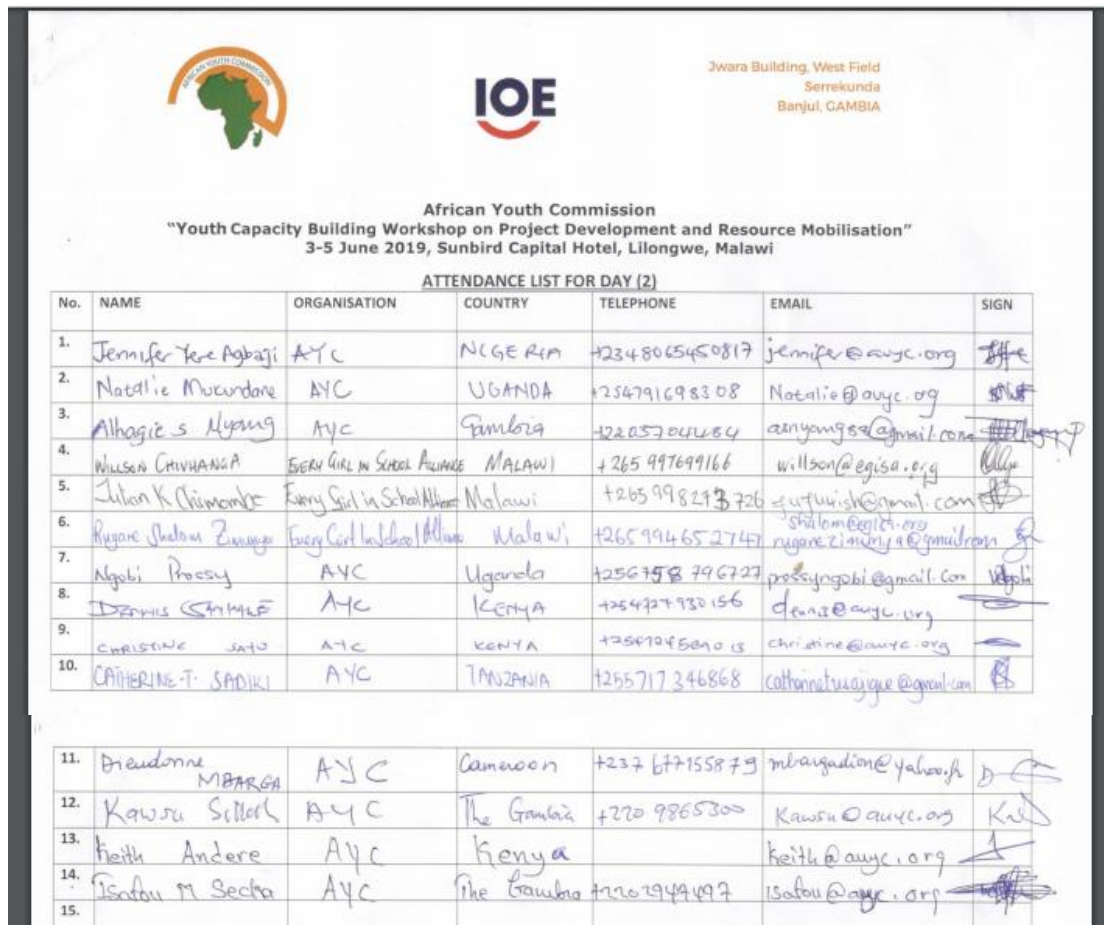 AFRICAN YOUTH COMMISSION
IOE
Jwara Building, West Field
Serrekunda
Banjul, GAMBIA
African Youth Commission
"Youth Capacity Building Workshop on Project Development and Resource Mobilisation"
3-5 June 2019, Sunbird Capital Hotel, Lilongwe, Malawi
ATTENDANCE LIST FOR DAY (2)
No. NAME ORGANISATION COUNTRY TELEPHONE EMAIL SIGN
1. Jennifer Yere Agbaji AYC NIGERIA +2348065450817 jennifer@auyc.org
2. Natalie Mukundane AYC UGANDA +254791698308 Natalie@auyc.org
3. Alhagie S Nyang AYC Gambia
4. WILLSON CHIVHANGA EVERY GIRL IN SCHOOL ALLIANCE MALAWI +265 997699166 willson@egisa.org
5. Julian K Chimombe Every Girl in School Alliance Malawi
6. Rugare Shalom Every Girl In School Alliance Malawi +265994652747
7. Ngobi Prossy AYC Uganda +256758 796727 prossyngobi@gmail.com
8. DENNIS AYC KENYA +254727930156 dennis@auyc.org
9. CHRISTINE AYC KENYA christine@auyc.org
10. CATHERINE.T. SADIKI AYC TANZANIA +255717346868
11. Dieudonne MBARGA AYC Cameroon +237 677155879 mbargadion@yahoo.fr
12. Kawsu Sillah AYC The Gambia +220 9865300 Kawsu@auyc.org
13. Keith Andere AYC Kenya keith@auyc.org
14. Isatou M AYC The Gambia isatou@auyc.org
15.